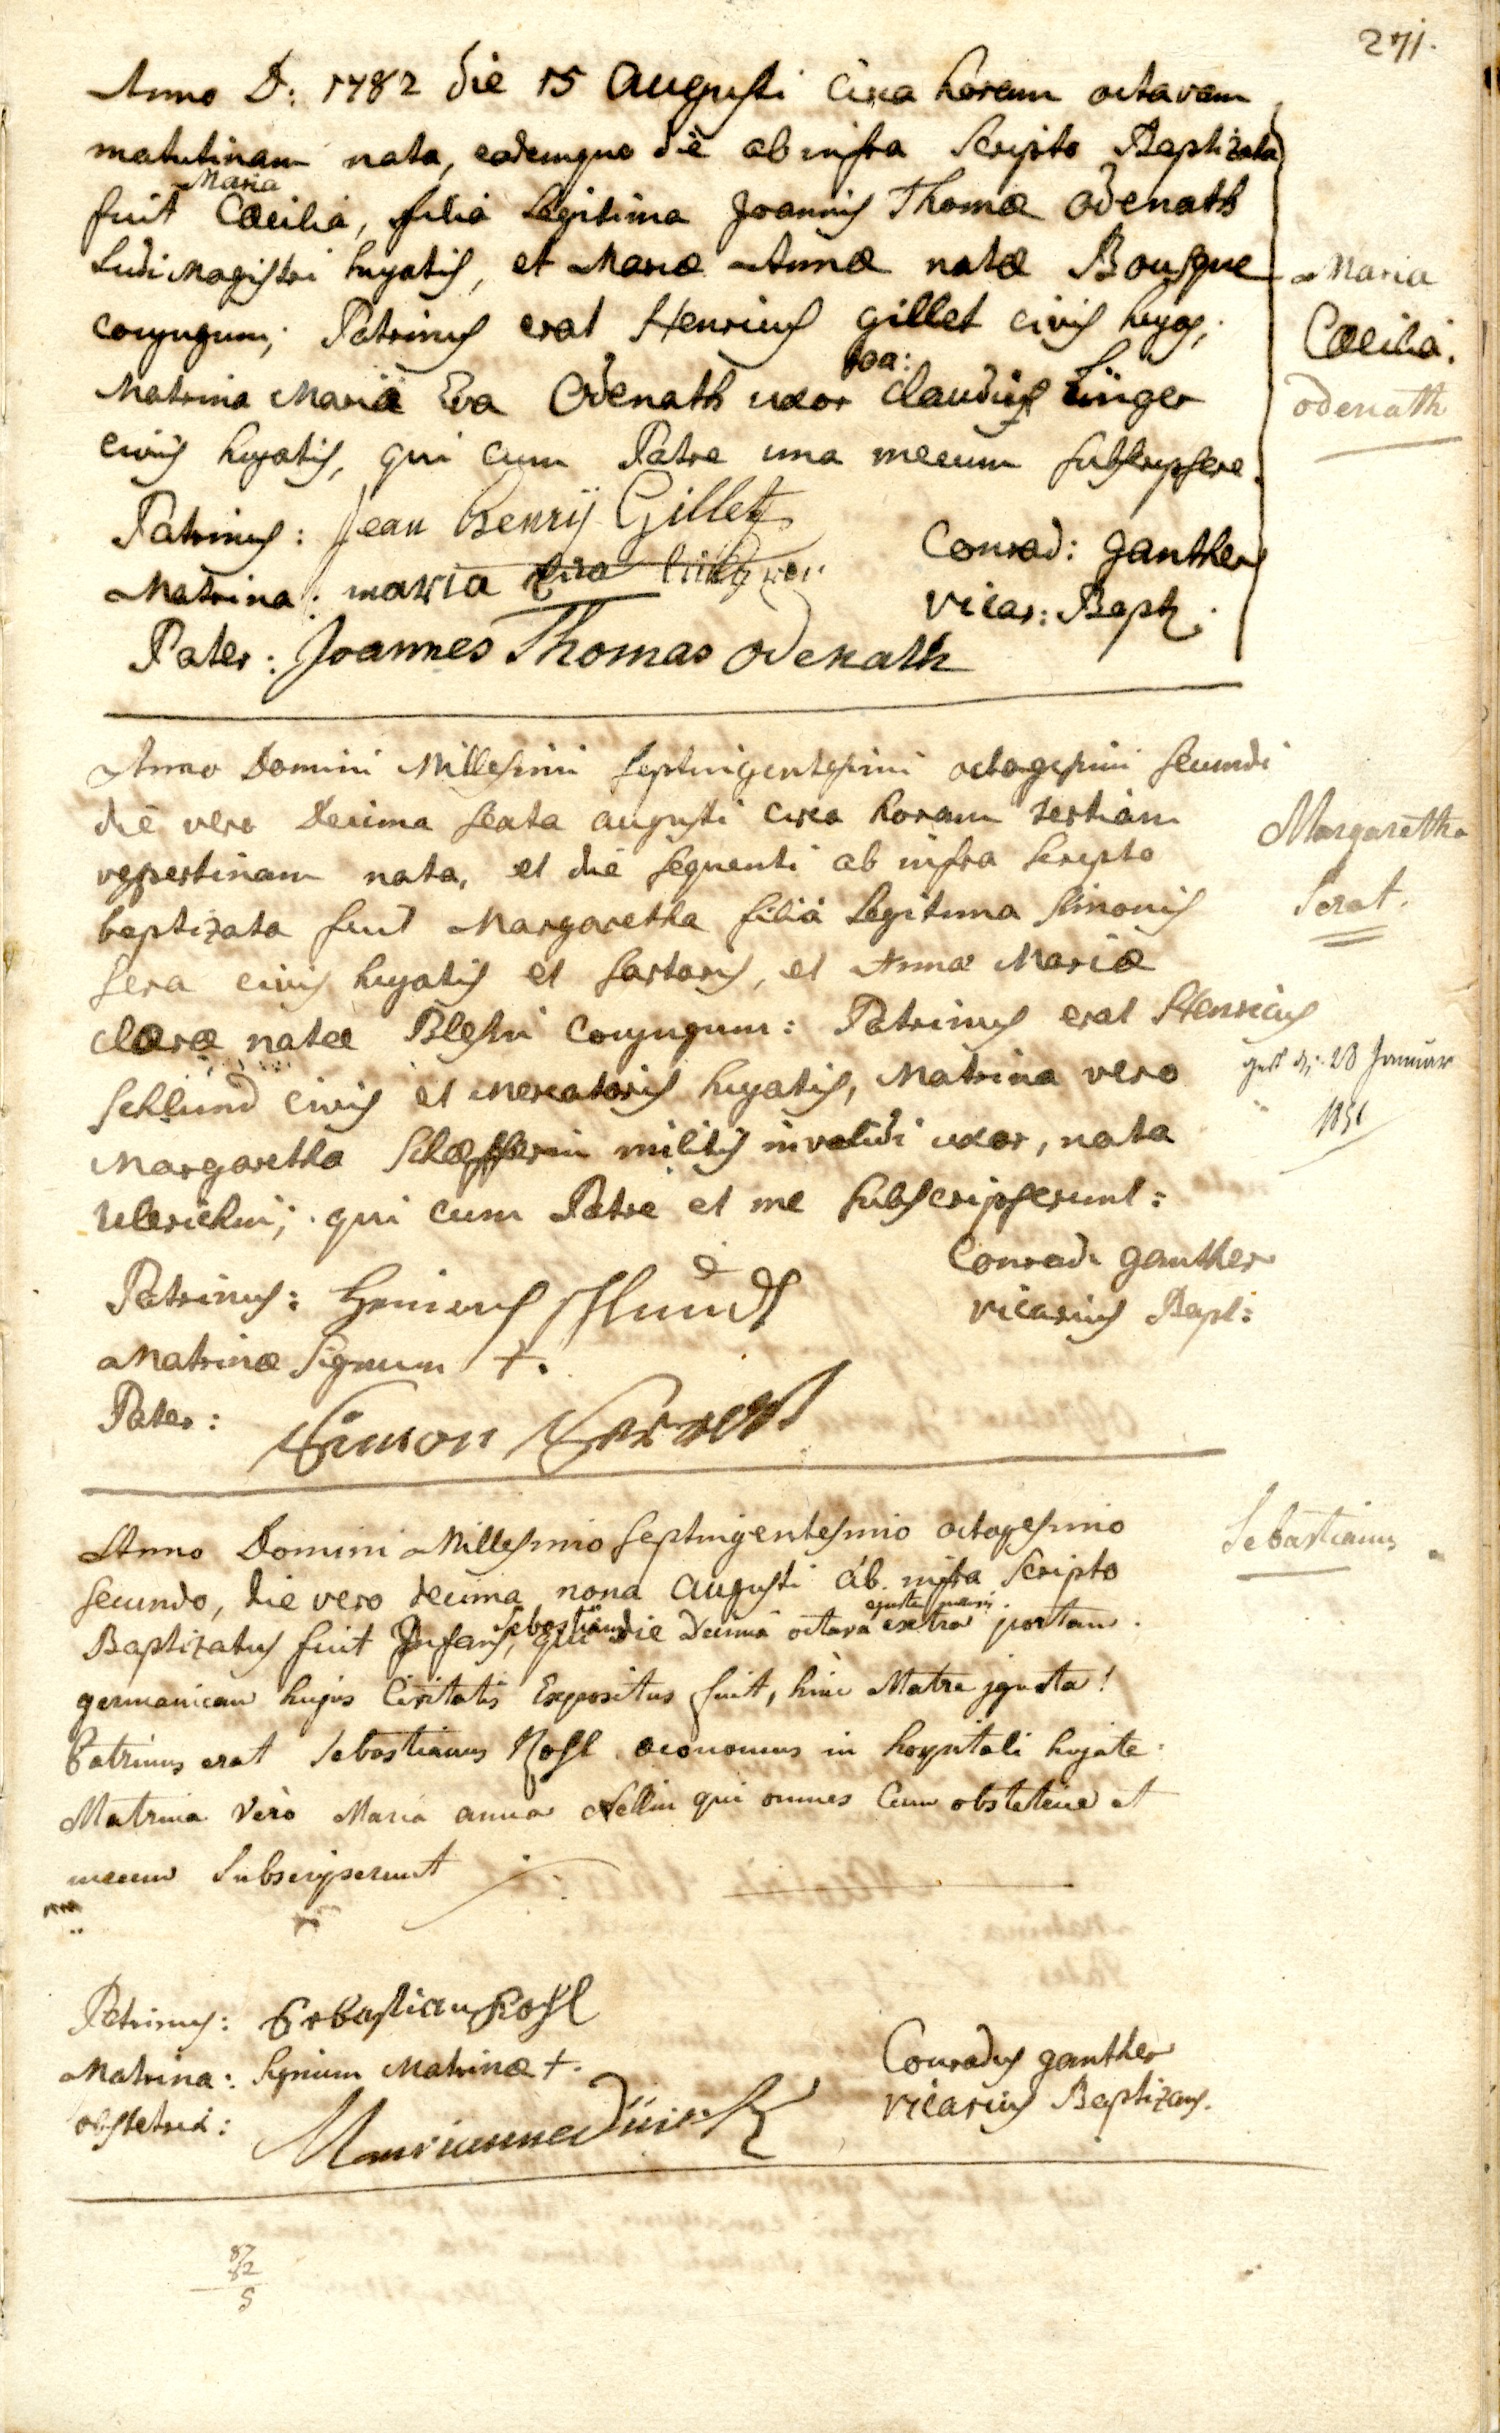 271.
Anno D: 1782 die 15 Augusti circa horam octavam
matutinam nata, eodemque die ab infra scripto Baptizata
fuit Maria Cæcilia, filia legitima Joannis Thomæ Odenath
Ludi Magistri hujatis, et Mariæ Annæ natæ Bousque
conjugum; Patrinus erat Henricus Gillet civis hujas;
Matrina Maria Eva Odenath uxor Claudii Linger
civis hujatis, qui cum Patre una mecum subscripsere.
Maria
Cæcilia.
Odenath
Patrinus: Jean henrÿ Gillet
Matrina: maria Eva
Pater: Joannes Thomas Odenath
Conrad: Ganther
vicar: Bapts.
Anno Domini Millesimi septingentesimi octogesimi secundi
die vero Decima sexta augusti circa horam tertiam
vespertinam nata, et die sequenti ab infra scripto
baptizata fuit Margaretha filia legitima Simonis
Sera civis hujatis et sartoris, et Annæ Mariæ
claræ natæ Blesin conjugum: Patrinus erat Henricus
Schlund civis et Mercatoris hujatis, Matrina vero
Margaretha Schæfferin militis invalidi uxor, nata
Ulerichin; qui cum Patre et me subscripserunt:
Margaretha
Serat.
gest d: 28 Januar
Patrinus: Henricus Schlundt
Matrinæ Signum +.
Pater: Simon
Conrad: Ganther
vicarius Bapt:
Anno Domini Millesimo septingentesimo octogesimo
secundo, die vero decima nona Augusti ab infra scripto
Baptizatus fuit Infans, Sebastianus qui die decima octava ejusdem mensis extra portam
germanicam hujus Civitatis Expositus fuit, hinc Matre ignota!
Patrinus erat Sebastianus Kohl oeconomus in hospitali hujate:
Matrina vero Maria anna Nellin qui omnes Cum obstetrice et
mecum Subscripserunt
Sebastianus
Patrinus: Sebastian Kohl
Matrina: Signum Matrinæ +.
obstetrix: Marianne
Conradus Ganther
vicarius Baptizans.
87
82
5